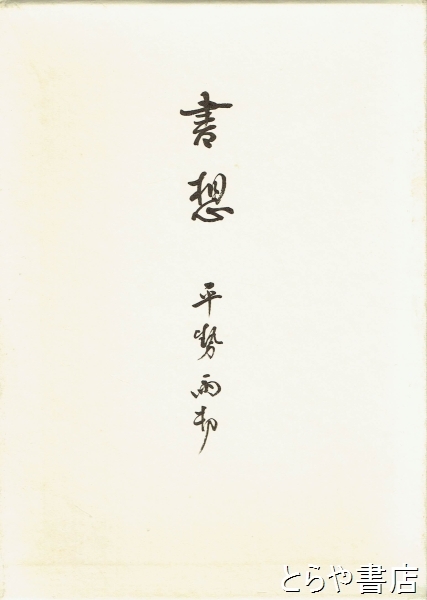 書想
平勢雨邨
とらや書店